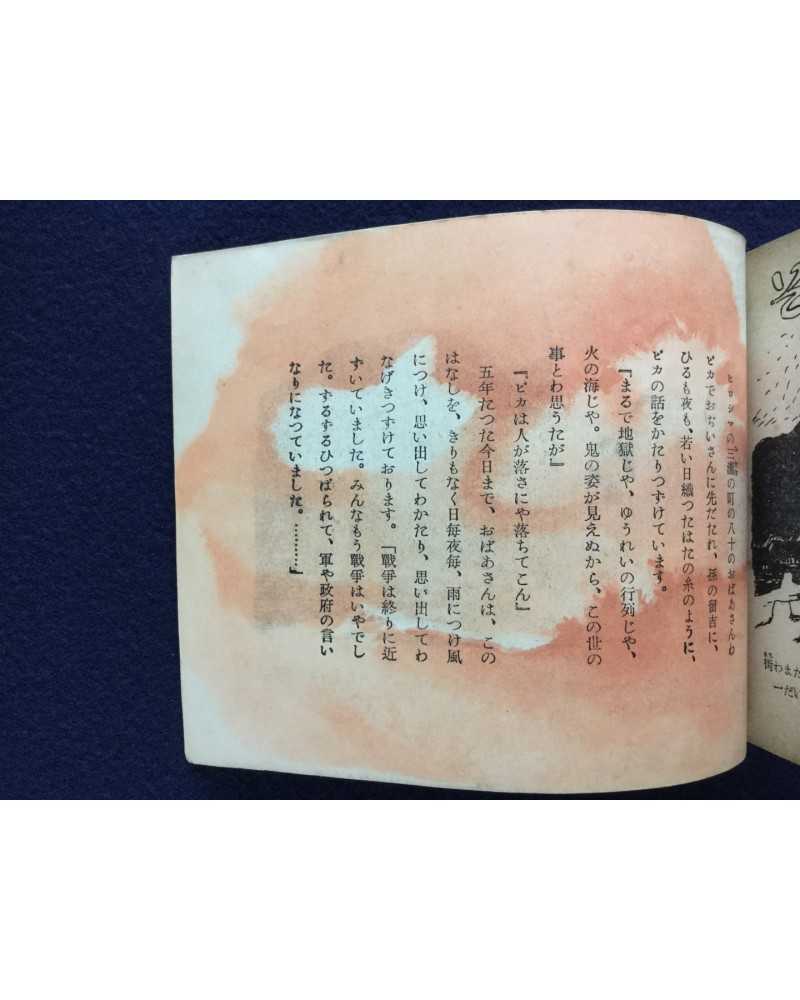 ヒロシマの三瀧の町の八十のおばあさんわ
ピカでおぢいさんに先だたれ、孫の留吉に、
ひるも夜も、若い日織つたはたの糸のように、
ピカの話をかたりつずけています。
『まるで地獄じや、ゆうれいの行列じや、
火の海じや。鬼の姿が見えぬから、この世の
事とわ思うたが』
『ピカは人が落さにや落ちてこん』
五年たつた今日まで、おばあさんは、この
はなしを、きりもなく日毎夜毎、雨につけ風
につけ、思い出してわかたり、思い出してわ
なげきつずけております。「戰爭は終りに近
ずいていました。みんなもう戰爭はいやでし
た。ずるずるひつばられて、軍や政府の言い
なりになつていました。…………』
街わまだ
一だい